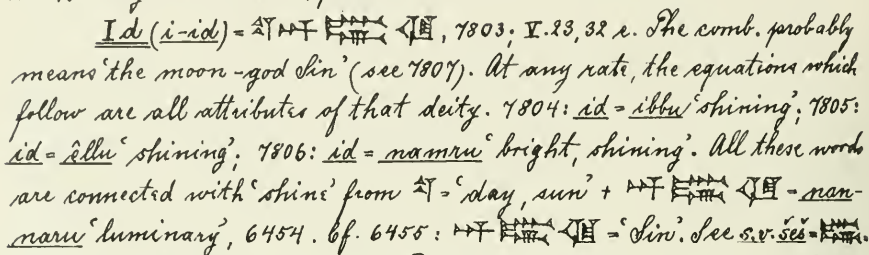 Id (i-id) = 𒌓 𒀭 𒋀 𒆠, 7803; V. 23, 32 e. The comb. probably
means 'the moon-god Sin' (see 7807). At any rate, the equations which
follow are all attributes of that deity. 7804: id = ibbu 'shining'; 7805:
id = êllu 'shining'; 7806: id = namru 'bright, shining'. All these words
are connected with 'shine' from 𒌓 = 'day, sun' + 𒀭 𒋀 𒆠 = nan-
naru 'luminary', 6454. Cf. 6455: 𒀭 𒋀 𒆠 = 'Sin'. See s.v. šeš = 𒋀.